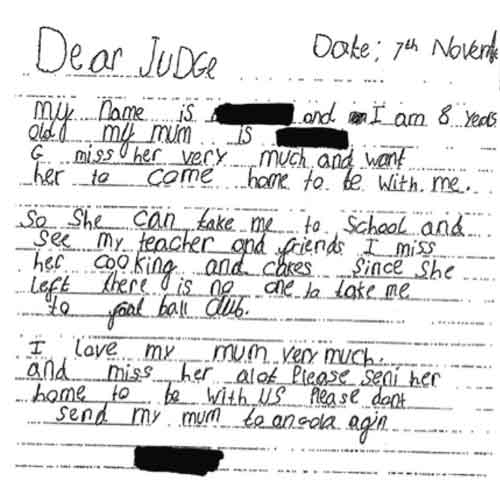 Dear JUDGE
Date; 7th Novembe
my name is and I am 8 years
old my mum is
G miss her very much and want
her to come home to be with me.
So she can take me to school and
see my teacher and friends I miss
her cooking and cakes since she
left there is no one to take me
to foot ball club.
I love my mum very much.
and miss her alot Please seni her
home to be with US Please dont
send my mum to angola agin